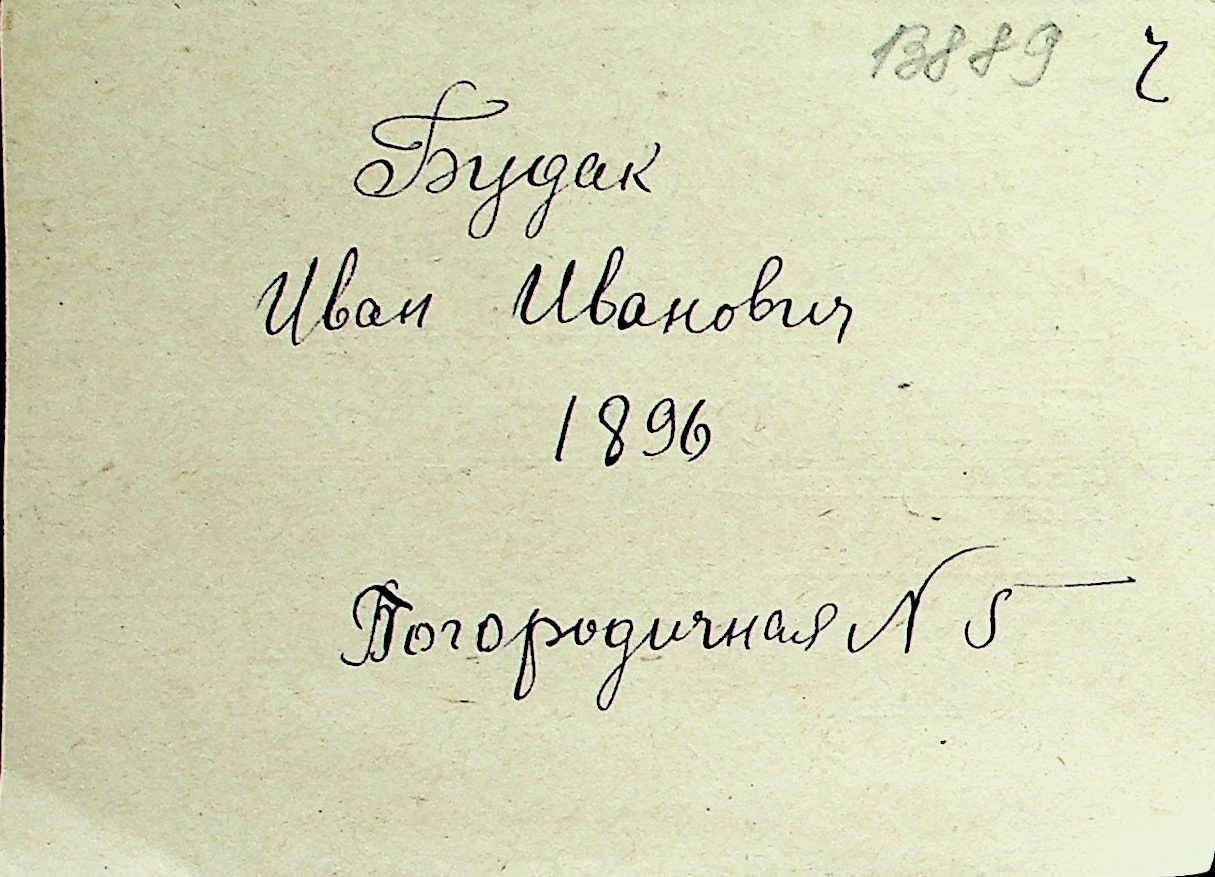 13889 г
Будак
Иван Иванович
1896
Богородичная N 5